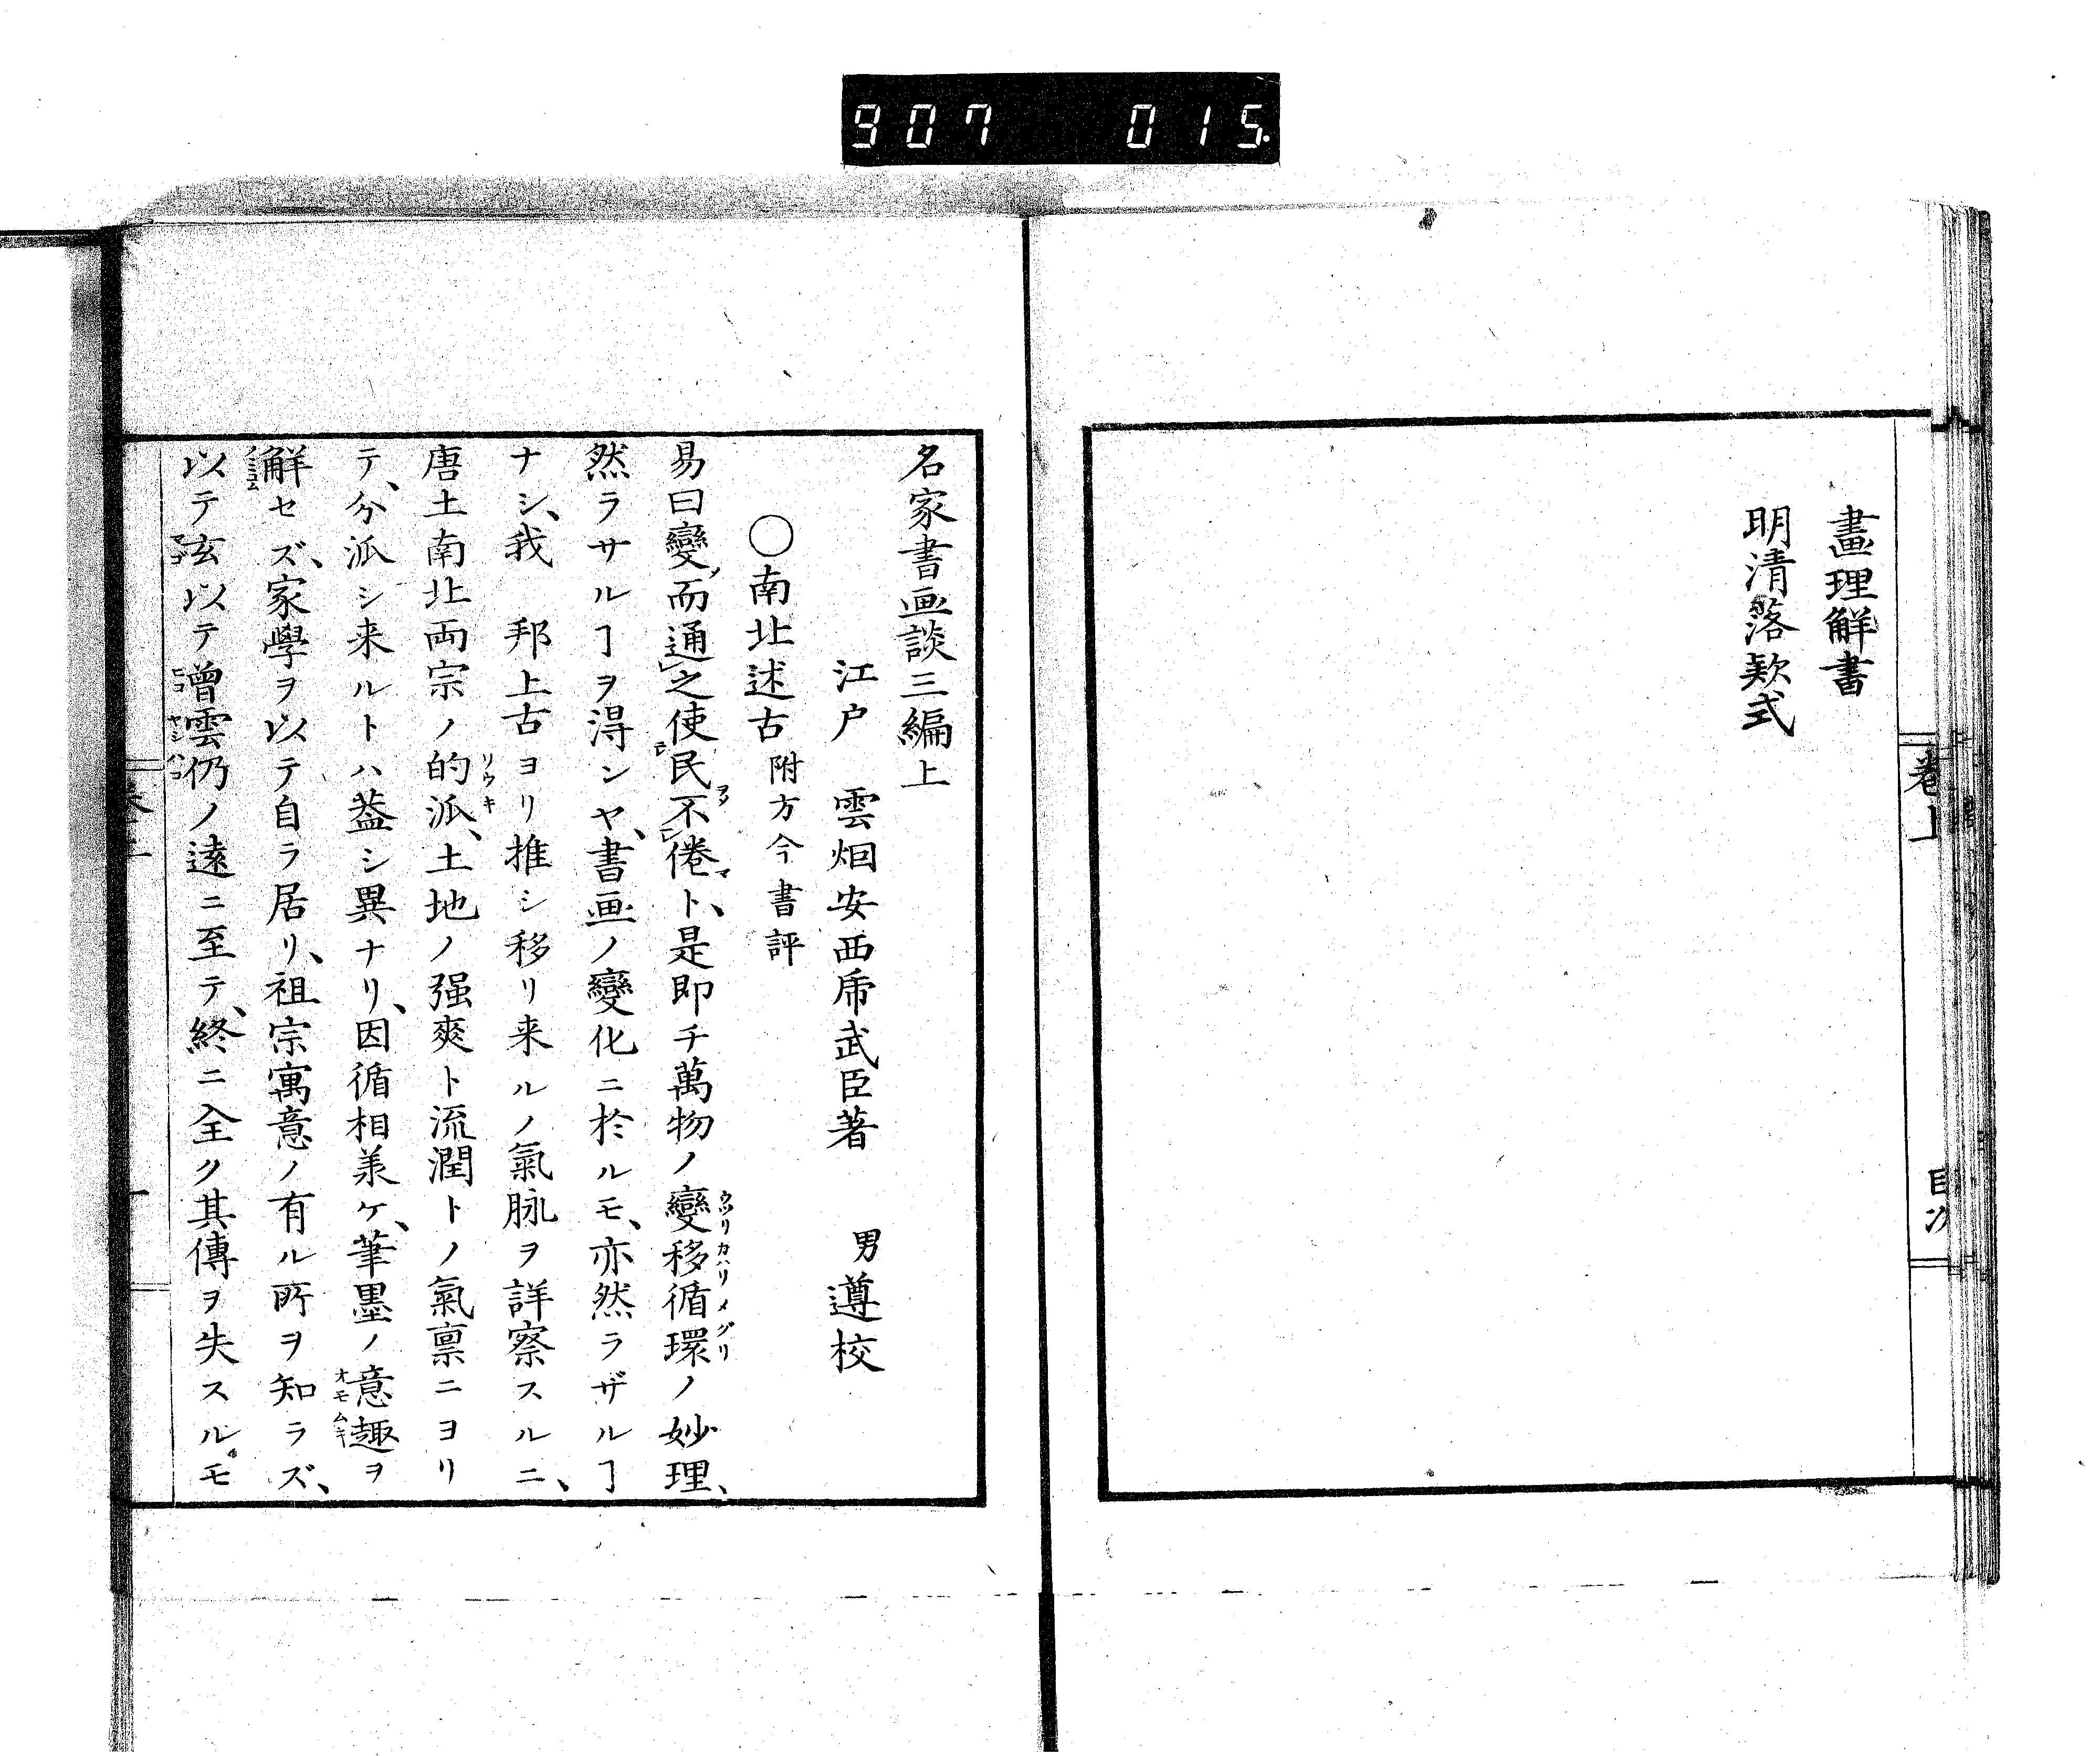 907 015
畫理解書
明清落款式
卷上
目次
名家書画談三編上
江戸 雲烟安西於菟武臣著 男遵校
〇南北述古 附方今書評
易曰變而通之使民不倦ト、是即チ萬物ノ變移循環ノ妙理、
然ラサルヿヲ淂ンヤ、書画ノ變化ニ於ルモ、亦然ラザルヿ
ナシ、我 邦上古ヨリ推シ移リ来ルノ氣脉ヲ詳察スルニ、
唐土南北両宗ノ的派、土地ノ强爽ト流潤トノ氣禀ニヨリ
テ、分派シ来ルトハ葢シ異ナリ、因循相羕ケ、筆墨ノ意趣ヲ
解セズ、家學ヲ以テ自ラ居リ、祖宗寓意ノ有ル所ヲ知ラズ、
以テ玄以テ曾雲仍ノ遠ニ至テ、終ニ全ク其傳ヲ失スルモ